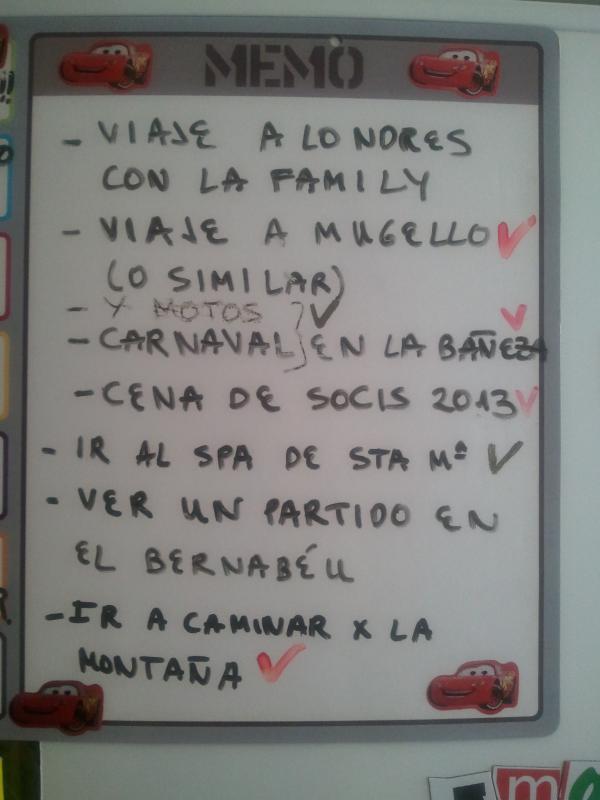 MEMÒ
- VIAJE A LONDRES
CON LA FAMILY
- VIAJE A MUGELLO ✓
(O SIMILAR)
- Y MOTOS ✓ ✓
- CARNAVAL } EN LA BAÑEZA
- CENA DE SOCIS 2013 ✓
- IR AL SPA DE STA Mª ✓
- VER UN PARTIDO EN
EL BERNABÉU
- IR A CAMINAR X LA
MONTAÑA ✓